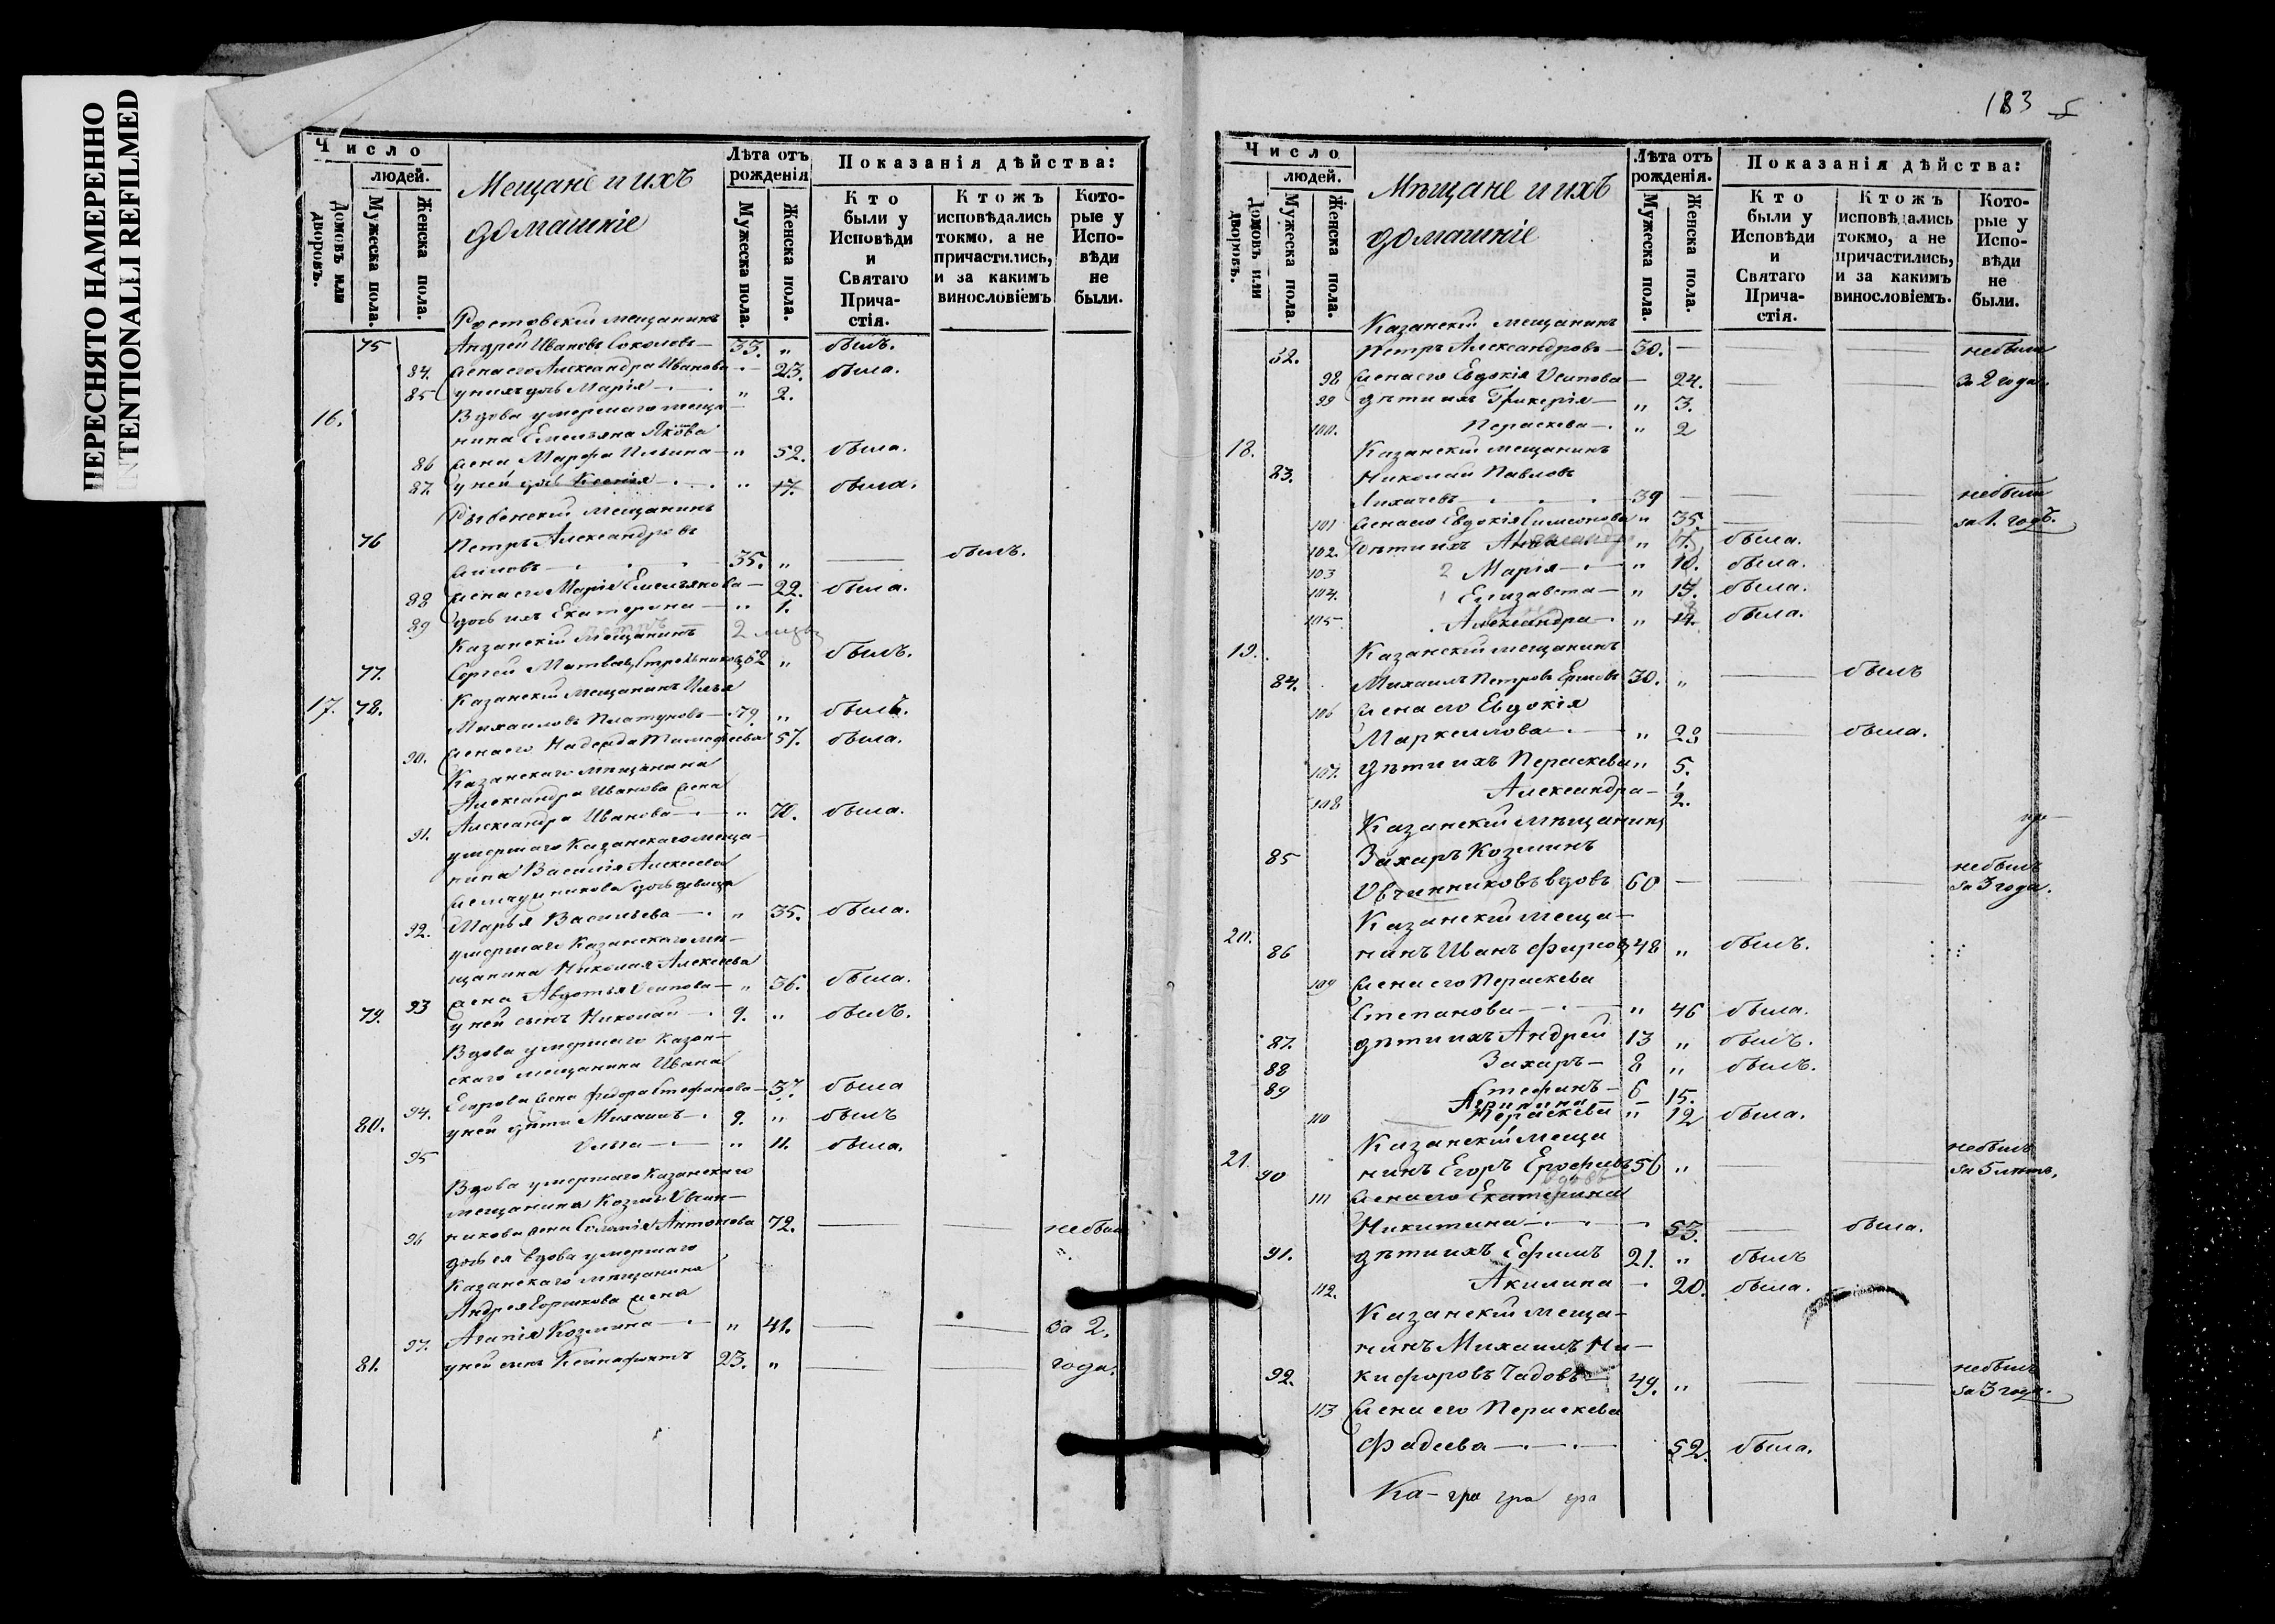 ПЕРЕСНЯТО НАМЕРЕННО
INTENTIONALLI REFILMED
Число
людей.
Домовъ или дворовъ.
Мужеска пола.
Женска пола.
Мещане и ихъ
домашніе
Лѣта отъ рожденія
Мужеска пола.
Женска пола.
Показанія дѣйства:
Кто были у Исповѣди и Святаго Прича- стія.
Ктожъ исповѣдались токмо, а не причастились, и за какимъ винословіемъ
Кото- рые у Испо- вѣди не были.
Ростовскій мещанинъ
75 Андрей Ивановъ Соколовъ — 33. „ былъ.
84. жена его Александра Иванова — 23. была.
85 у нихъ дочь Марія — „ 2.
16. Вдова умершаго меща-
нина Емельяна Якова
86 жена Марфа Ильина — „ 52. была.
87. у ней дочь Ксенія — „ 17. была.
Рыбенскій мещанинъ
76 Петръ Александровъ
35. „ — былъ.
88 жена его Марія Емельянова — 22. была.
89 дочь ихъ Екатерина — „ 1.
Казанскій Мещанинъ
77. Сергей Матвеевъ Стрельниковъ 62 „ былъ.
17. 78. Казанскій Мещанинъ Илья
Михаиловъ Платуновъ — 79. „ былъ.
90. жена его Надежда Тимофеева 57. была.
Казанскаго мещанина
Александра Иванова жена
91. Александра Иванова — „ 70. была.
умершаго Казанскаго меща-
нина Василія Алексеева
дочь девица
92. Марья Васильева — „ 35. была.
умершаго Казанскаго ме-
щанина Николая Алексеева
93 жена Авдотья Осипова — „ 36. была.
79. у ней сынъ Николай — 9. „ былъ.
Вдова умершаго Казан-
скаго мещанина Ивана
94. Егорова жена Федора Стефанова — 37. была
80. у ней дѣти Михаилъ — 9. „ былъ
95 Ольга — „ 11. была.
Вдова умершаго Казанскаго
мещанина Козмы Овчин-
96 никова жена Соломія Антонова 72. — — небыли
дочь ея вдова умершаго
Казанскаго мещанина
Андрея Горшкова жена
97. Агапія Козмина — „ 41. — — за 2.
81. у ней сынъ Ксенофонтъ 23. „ — — года.
183
5
Число
людей.
Домовъ или дворовъ.
Мужеска пола.
Женска пола.
Мѣщане и ихъ
домашніе
Лѣта отъ рожденія.
Мужеска пола.
Женска пола.
Показанія дѣйства:
Кто были у Исповѣди и Святаго Прича- стія.
Ктожъ исповѣдались токмо, а не причастились, и за какимъ винословіемъ.
Кото- рые у Испо- вѣди не были.
Казанскій мещанинъ
82. Петръ Александровъ — 30. — — небыли
98 жена его Евдокія Осипова — 24. — — за 2 года.
99 дѣти ихъ Гликерія — „ 3.
100. Пераскева — „ 2
18. Казанскій мещанинъ
83. Николай Павловъ
Лихачевъ — 39 — — — небыли
101 жена его Евдокія Симеонова „ 35. — — за 1. годъ.
102. дѣти ихъ Анна „ была.
103 2 Марія — „ 10. была.
104. 1 Елизавета — „ 15. была.
105 Александра — „ 14. была.
19. Казанскій мещанинъ
84. Михаилъ Петровъ Ершовъ 30. „ — былъ
106 жена его Евдокія
Маркеллова — „ 23 — была.
107. дѣти ихъ Пераскева „ 5.
108 Александра — 2.
Казанскій мѣщанинъ
85 Захаръ Козминъ
Овчинниковъ вдовъ 60 — — — небылъ за 3 года.
Казанскій меща-
20. 86 нинъ Иванъ Фирсовъ 48 „ былъ.
109 жена его Пераскева
Степанова — „ 46 была.
87. дѣти ихъ Андрей 13 „ былъ.
88 Захаръ — 8 „ былъ.
89 Стефанъ — 6
15.
110 Пераскева „ 12 была.
Казанскій меща
21. 90 нинъ Егоръ Ерофеевъ 56 „ — — небылъ за 5 лѣтъ.
111 жена его Екатерина
Никитина — 53. — была.
91. дѣти ихъ Ефимъ 21. „ былъ
112. Акилина — 20. была.
Казанскій меща-
нинъ Михаилъ Ни-
92. кифоровъ Чадовъ — 49. „ — — небылъ за 3 года.
113 жена его Пераскева
Фадеева — 52. была.
Ка- гра гра гра